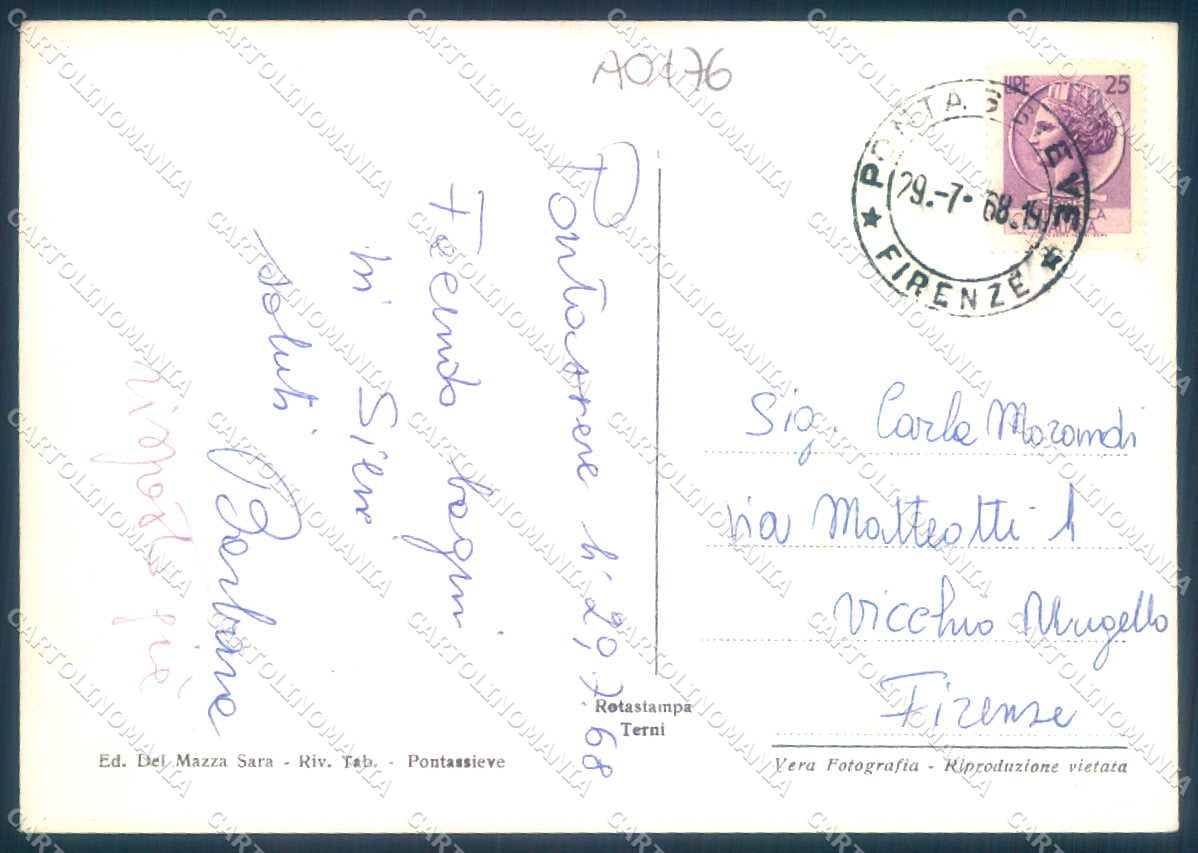 LIRE 25
PONTASSIEVE
29.-7.68.19
★ FIRENZE ★
Pontassieve li 29.7.68
Facendo bagni
in Sieve
saluti
Barbara
risposto già
Sig. Carla Morandi
via Matteotti 1
Vicchio Mugello
Firenze
Rotastampa
Terni
Ed. Del Mazza Sara - Riv. Tab. - Pontassieve
Vera Fotografia - Riproduzione vietata
CARTOLINOMANIA